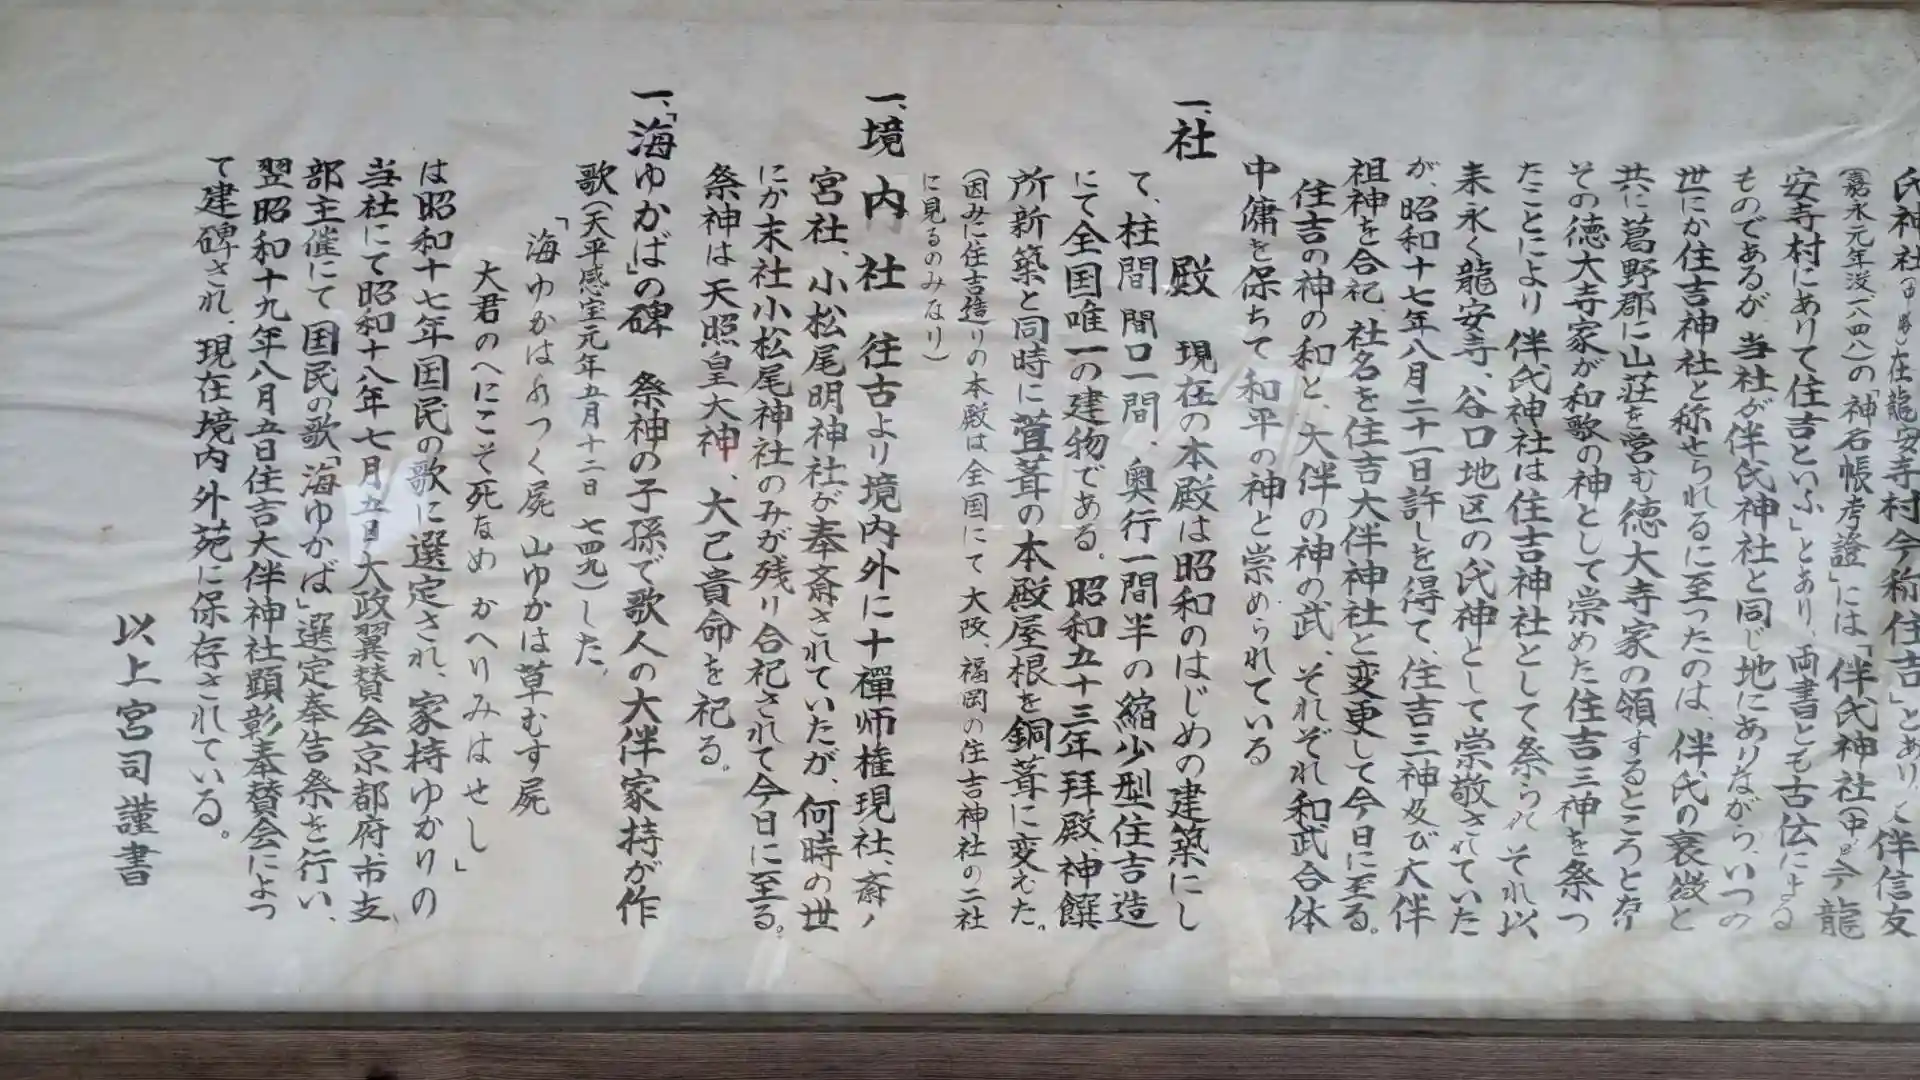 氏神社(中略)在龍安寺村今称住吉」とあり、伴信友
(嘉永元年没一八四八)の「神名帳考證」には「伴氏神社(中略)今龍
安寺村にありて住吉といふ」とあり、両書とも古伝による
ものであるが、当社が伴氏神社と同じ地にありながら、いつの
世にか住吉神社と称せられるに至つたのは、伴氏の衰微と
共に葛野郡に山荘を営む徳大寺家の領するところとなり
その徳大寺家が和歌の神として崇めた住吉三神を祭つ
たことにより伴氏神社は住吉神社として祭られ それ以
来永く龍安寺、谷口地区の氏神として崇敬されていた
が、昭和十七年八月二十一日許しを得て、住吉三神及び大伴
祖神を合祀、社名を住吉大伴神社と変更して今日に至る。
住吉の神の和と、大伴の神の武、それぞれ和武合体
中庸を保ちて和平の神と崇められている
一、社殿 現在の本殿は昭和のはじめの建築にし
て、柱間 間口一間、奥行一間半の縮少型住吉造
にて全国唯一の建物である。昭和五十三年拝殿、神饌
所新築と同時に萱葺の本殿屋根を銅葺に変えた。
(因みに住吉造りの本殿は全国にて大阪、福岡の住吉神社の二社
に見るのみなり)
一、境内社 往古より境内外に十禪师権現社、斎ノ
宮社、小松尾明神社が奉斎されていたが、何時の世
にか末社小松尾神社のみが残り合祀されて今日に至る。
祭神は天照皇大神、大己貴命を祀る。
一、「海ゆかば」の碑 祭神の子孫で歌人の大伴家持が作
歌(天平感宝元年五月十二日 七四九)した、
「海ゆかは みつく屍 山ゆかは草むす屍
大君のへにこそ死なめ かへりみはせし」
は昭和十七年国民の歌に選定され、家持ゆかりの
当社にて昭和十八年七月五日大政翼賛会京都府、市支
部主催にて国民の歌「海ゆかば」選定奉告祭を行い、
翌昭和十九年八月五日住吉大伴神社顕彰奉賛会によつ
て建碑され、現在境内外苑に保存されている。
以上宮司謹書